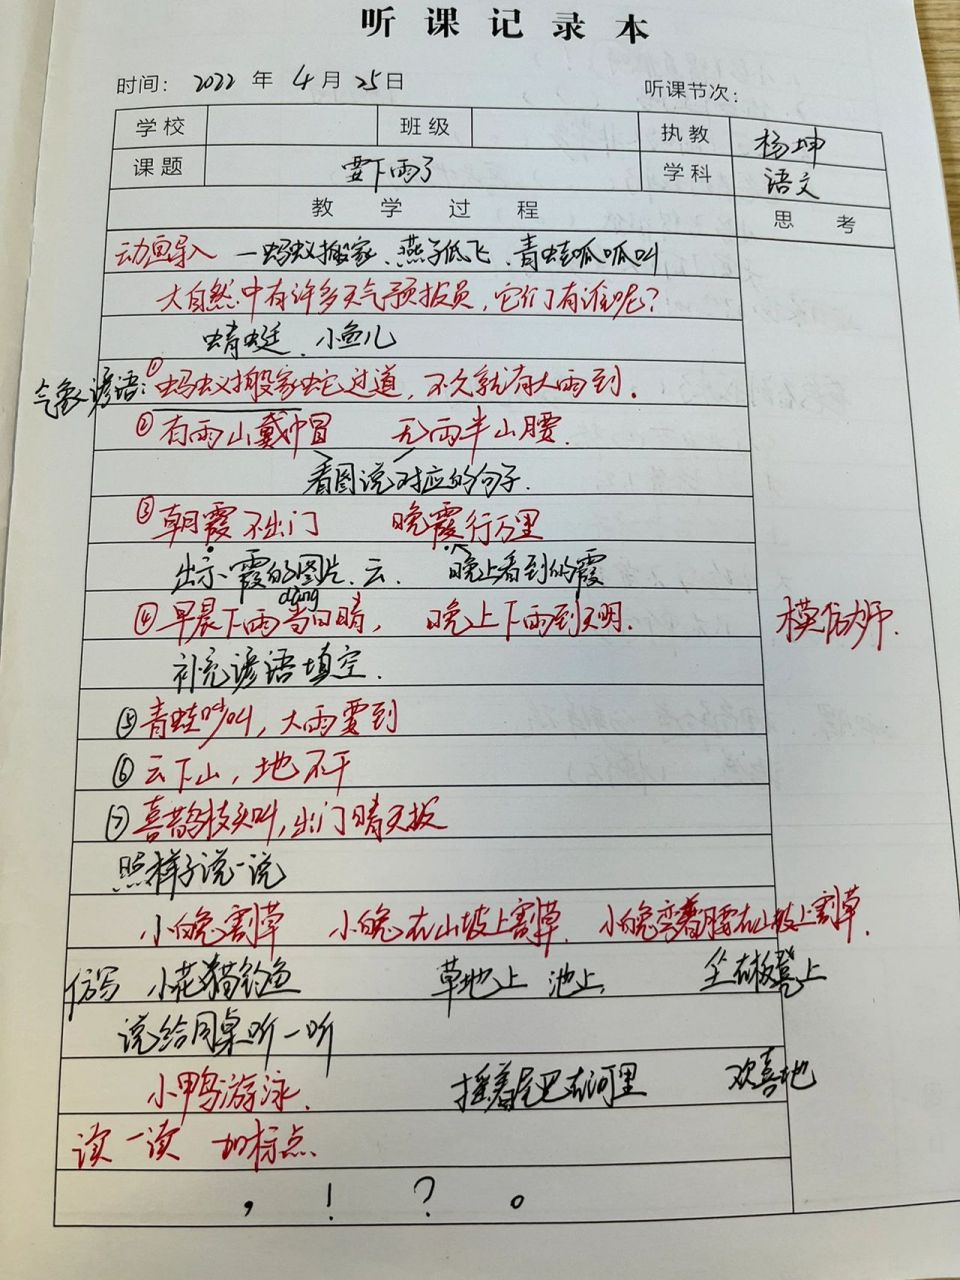 听课记录本
时间: 2022 年 4 月 25 日 听课节次:
学校 班级 执教 杨坤
课题 要下雨了 学科 语文
教学过程 思考
动画导入 — 蚂蚁搬家、燕子低飞、青蛙呱呱叫
大自然中有许多天气预报员,它们有谁呢?
蜻蜓、小鱼儿
气象谚语:①蚂蚁搬家蛇过道,不久就有大雨到.
②有雨山戴帽 无雨半山腰.
看图说对应的句子.
③朝霞不出门 晚霞行万里
出示霞的图片、云、 晚上看到的霞
dāng
④早晨下雨当日晴, 晚上下雨到天明.
模仿力
补充谚语填空.
⑤青蛙吵叫,大雨要到
⑥云下山,地不干
⑦喜鹊枝头叫,出门晴天报
照样子说一说
小白兔割草 小白兔在山坡上割草. 小白兔弯着腰在山坡上割草.
仿写 小花猫钓鱼 草地上 池上、 坐在板凳上
说给同桌听一听
小鸭游泳. 摇着尾巴在河里 欢喜地
读一读 加标点、
, ! ? 。